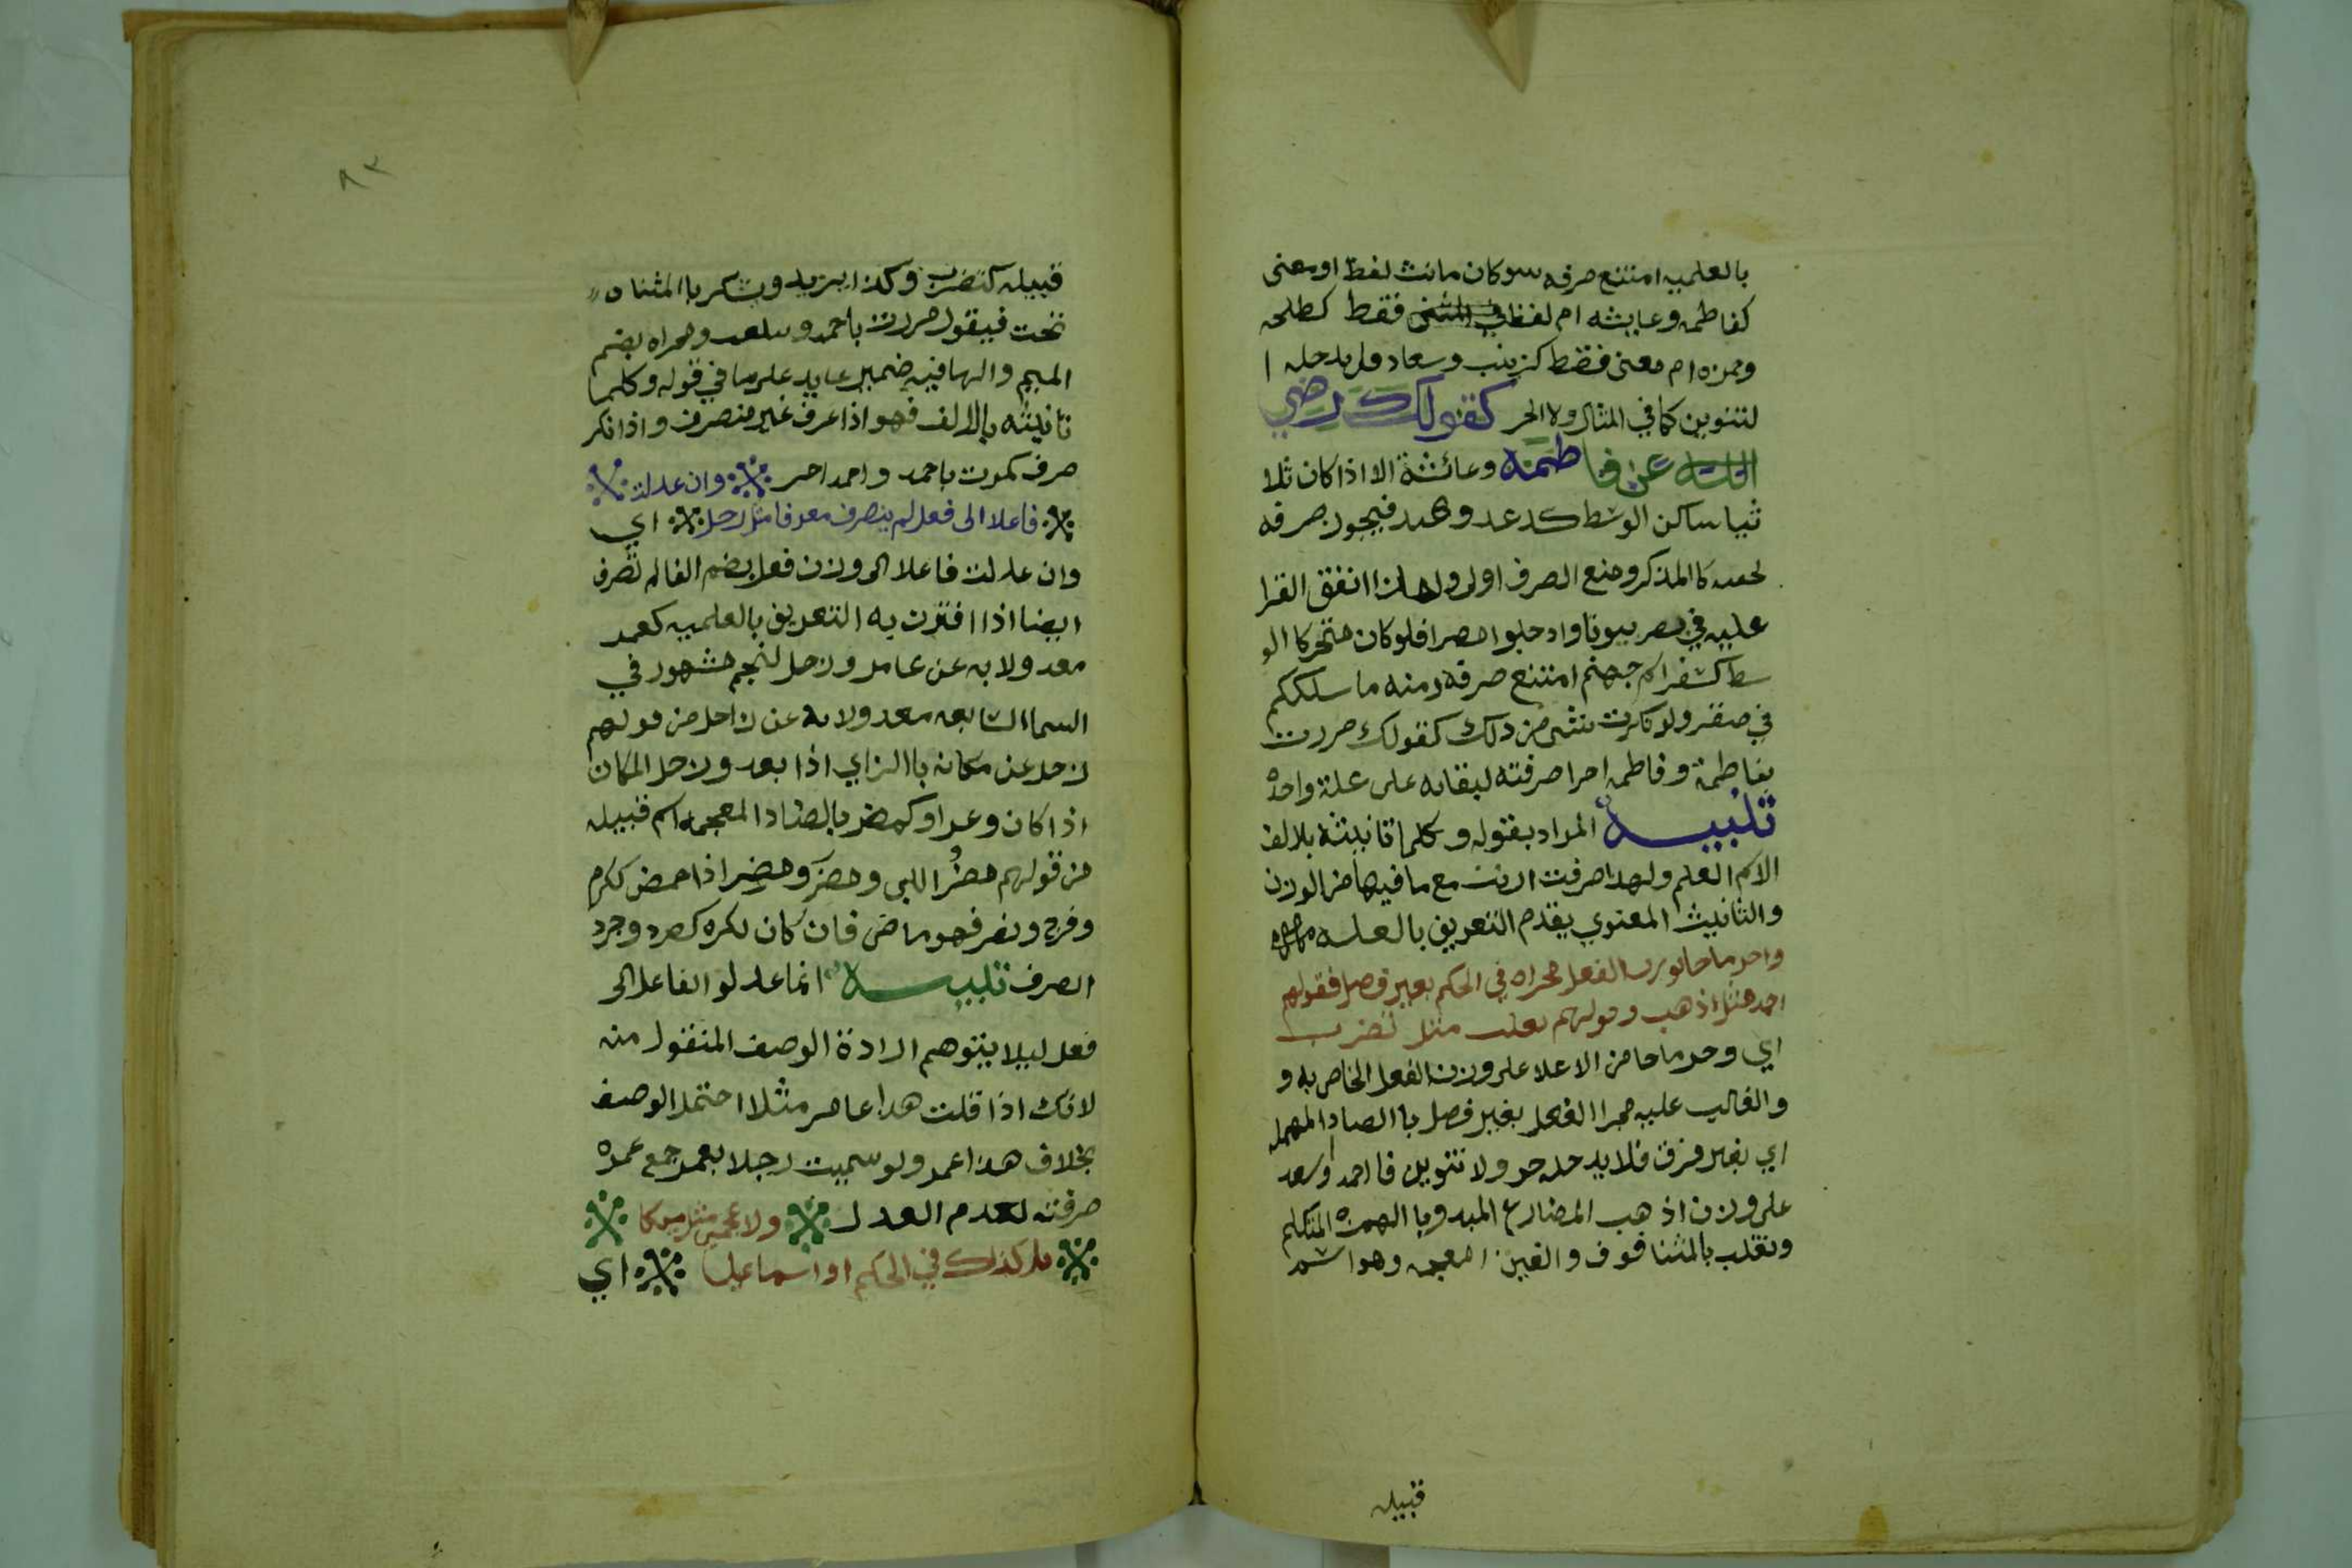 بالعلميه امتنع صرفه سو كان مانث لفظ او معنى
كفاطمه وعايشه ام لفظا فقط كطلحه
وحمزه ام معنى فقط كزينب وسعاد فلا يدخله ا
لتنوين كما في المثال ولا الجر كقولك رضي
الله عن فاطمة وعائشة الا اذا كان ثلا
ثيا ساكن الوسط كدعد وهند فيجوز صرفه
لخفته كا المذكر ومنع الصرف اولى ولهاذا اتفق القرا
عليه في بيوتا وادخلوا مصرا فلو كان متحركا الو
سط كسقر اسم جهنم امتنع صرفه ومنه ما سلككم
في صقر ولو نكرت شى من ذلك كقولك مررت
بفاطمة وفاطمه اخرا صرفته لبقايه على علة واحده
تنبيه المراد بقوله وكلما تانيثه بلا الف
الاسم العلم ولهذا صرفت ارنب مع ما فيها من الوزن
والتانيث المعنوي يقدم التعريف بالعلميه
واجر ما جا بوزن الفعل مجراه في الحكم بغير فصل فقولهم
احمد مثل اذهب وقولهم تغلب مثل تضرب
اي وجر ما جا من الاعلا على وزن الفعل الخاص به و
والغالب عليه مجرا الفعل بغير فصل با الصاد المهمله
اي بغير فرق فلا يدخله جر ولا تنوين فا احمد واسعد
على وزن اذهب المضارع المبدو با الهمزه المتكلم
وتغلب بالمثنا فوق والغين المعجمه وهو اسم
قبيله
٨٣
قبيله كتضرب وكذا يزيد ويشكر با المثناه
تحت فيقول مررت باحمد وتغلب ومجراه بضم
الميم والها فيه ضمير عايد على ما في قوله وكلما
تانيثه بالالف فهو اذا عرف غير منصرف واذا نكر
صرف كمررت باحمد واحمد اخر وان عدلت
فاعلا الى فعل لم ينصرف معرفا مثل زحل اي
وان عدلت فاعلا الى وزن فعل بضم الفا لم تصرف
ايضا اذا اقترن به التعريف بالعلميه كعمر
معدولا به عن عامر وزحل لنجم مشهور في
السما السابعه معدولا به عن زاحل من قولهم
زحل عن مكانه با الزاي اذا بعد وزحل المكان
اذا كان وعرا وكمضر بالضاد المعجمه اسم قبيله
من قولهم مضُر اللبن ومضَر ومضِر اذا حمض ككرم
وفرح ونصر فهو ماضر فان كان نكره كصرد وجرد
انصرف تنبيه انما عدلو الفاعل الى
فعل ليلا يتوهم ارادة الوصف المنقول منه
لانك اذا قلت هذا عامر مثلا احتمل الوصف
بخلاف هذا عمر ولو سميت رجلا بعمر جمع عمره
صرفته لعدم العدل ولا عجمي مثل ميكا
يل كذاك في الحكم او اسماعيل اي